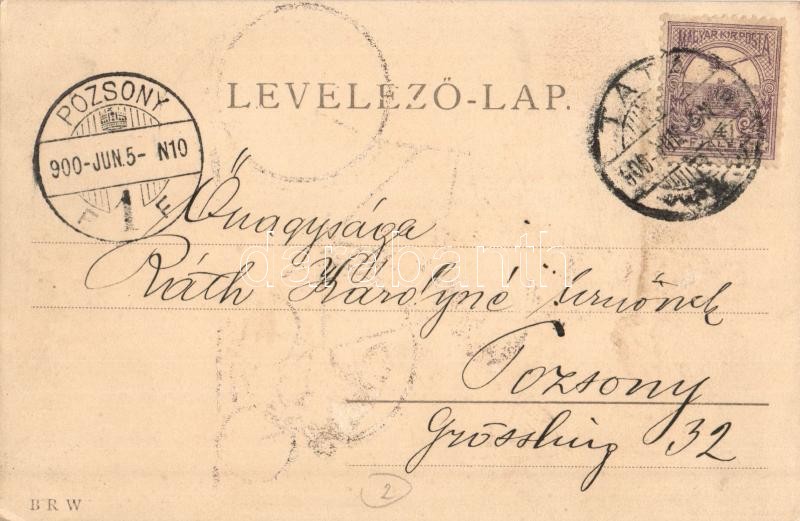 MAGYAR KIR. POSTA
LEVELEZŐ-LAP.
POZSONY
900-JUN.5- N10
1
Őnagysága
Ráth Károlyné
Pozsony
Grössling 32
darabanth
2
B R W